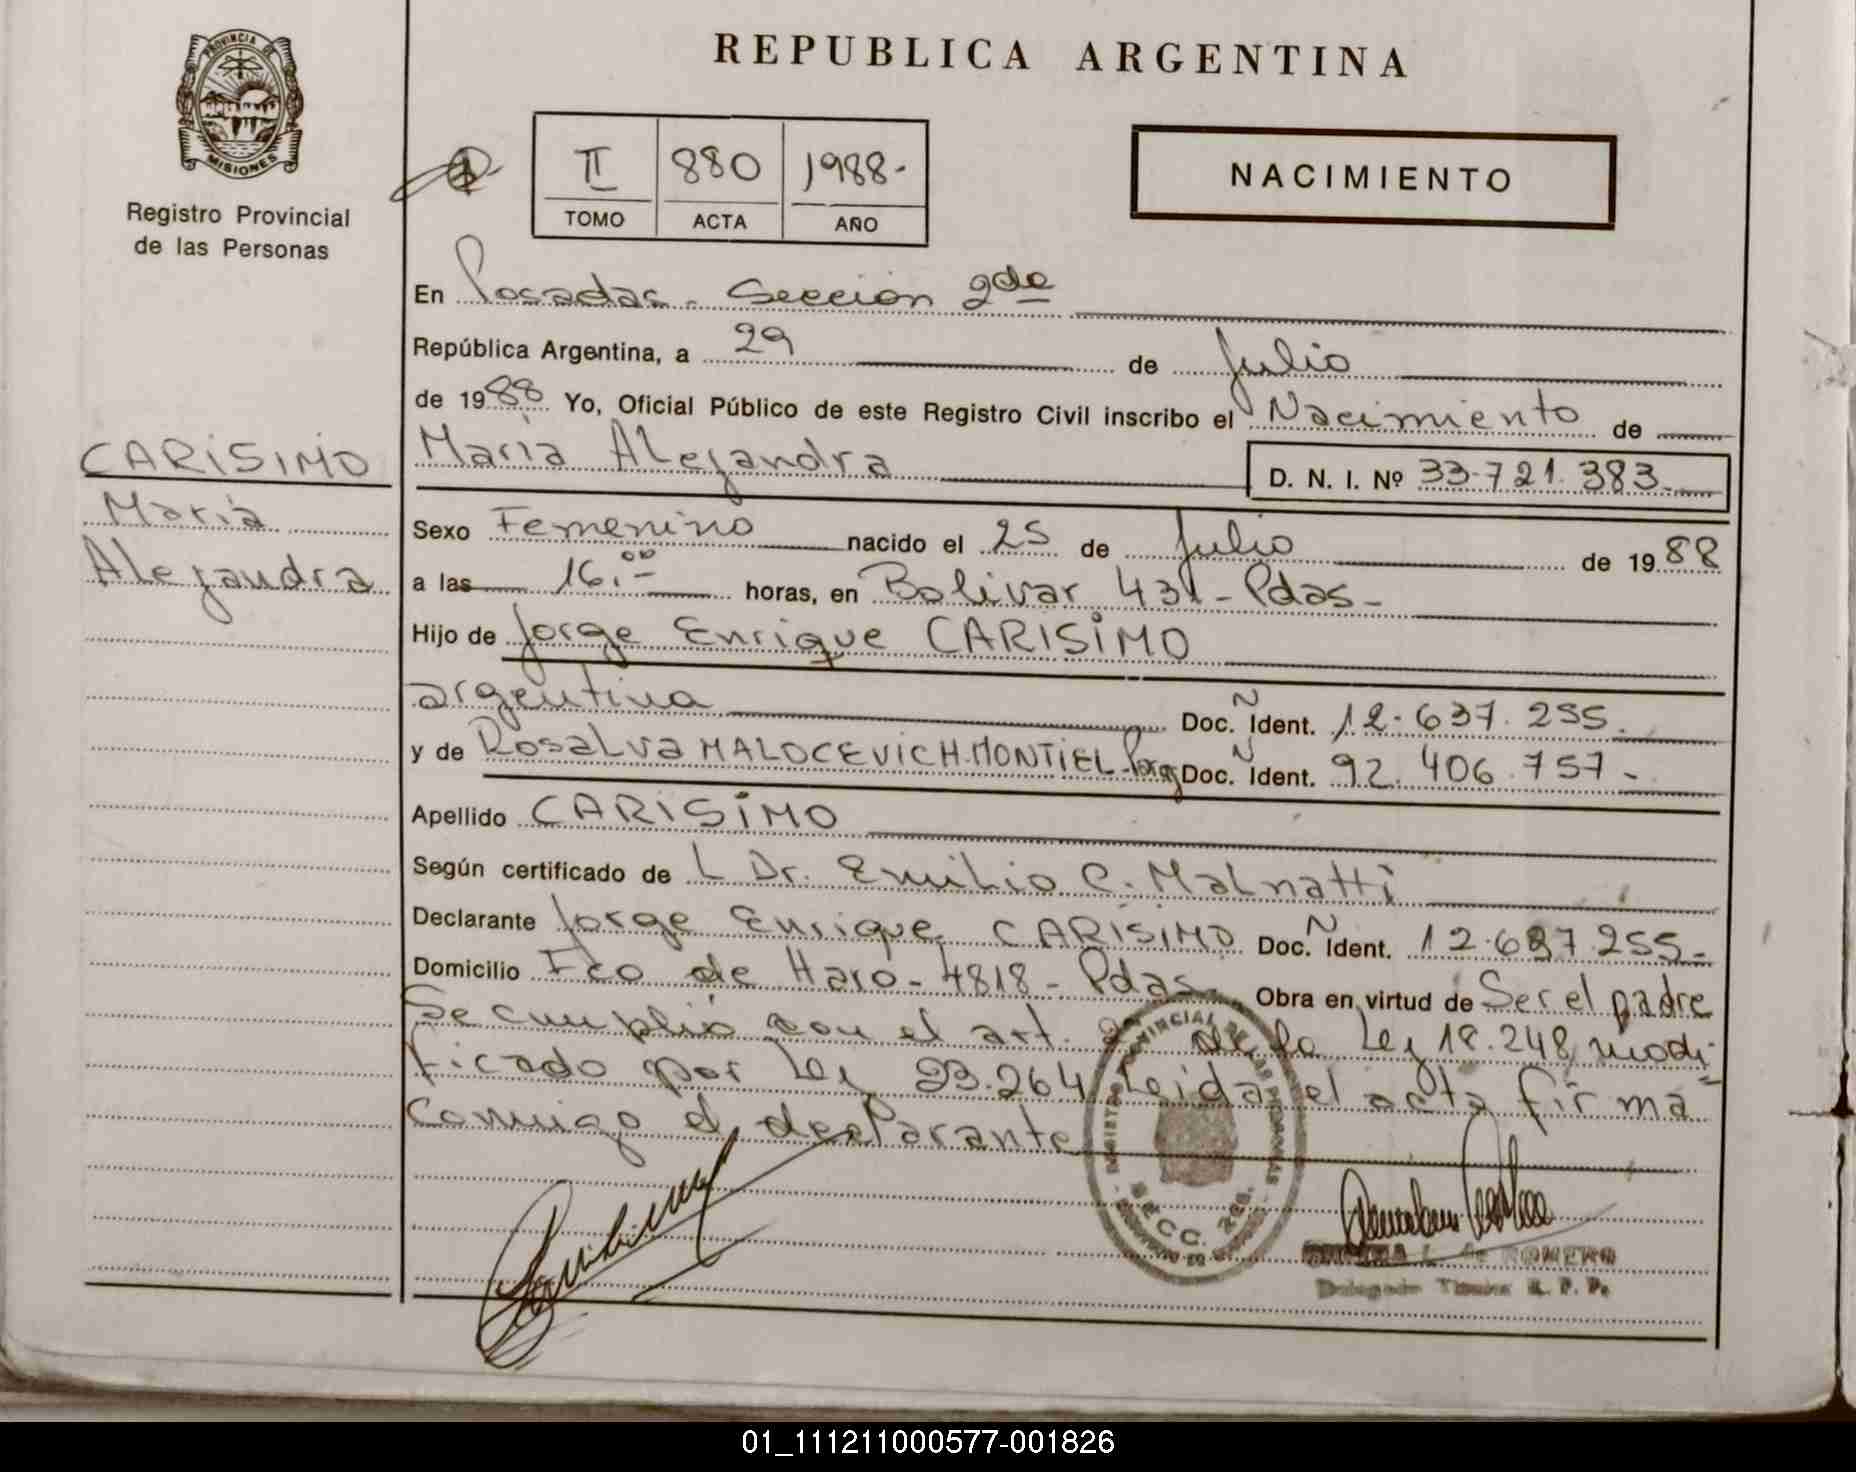 PROVINCIA DE
MISIONES
Registro Provincial
de las Personas
REPUBLICA ARGENTINA
II 880 1988.-
TOMO ACTA AÑO
NACIMIENTO
En Posadas - Sección 2da
República Argentina, a 29 de Julio
de 1988 Yo, Oficial Público de este Registro Civil inscribo el Nacimiento de
CARISIMO
María
Alejandra
María Alejandra D. N. I. Nº 33.721.383.-
Sexo Femenino nacido el 25 de Julio de 1988
a las 16.00 horas, en Bolivar 431 - Pdas -
Hijo de Jorge Enrique CARISIMO
argentina Doc. Ñ Ident. 12.637.255.-
y de Rosalva MALOCEVICH MONTIEL - Parag Doc. Ñ Ident. 92.406.757 -
Apellido CARISIMO
Según certificado de L Dr. Emilio C. Malnatti
Declarante Jorge Enrique CARISIMO Doc. Ñ Ident. 12.637.255-
Domicilio Fco de Haro - 4818 - Pdas - Obra en virtud de Ser el padre
Se cumplió con el art. de la Ley 18.248 modi-
ficado por Ley 23.264 Leida el acta firma
conmigo el declarante
SECC. 2da.
L. de ROMERO
Delegado Titular R. P. P.
01_111211000577-001826